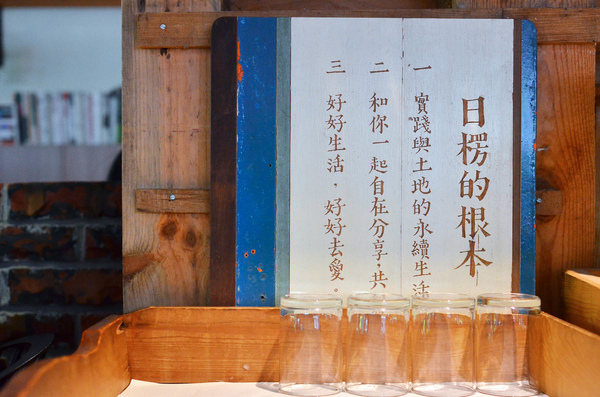 日楞的根本
一 實踐與土地的永續生活
二 和你一起自在分享,共
三 好好生活,好好去愛。